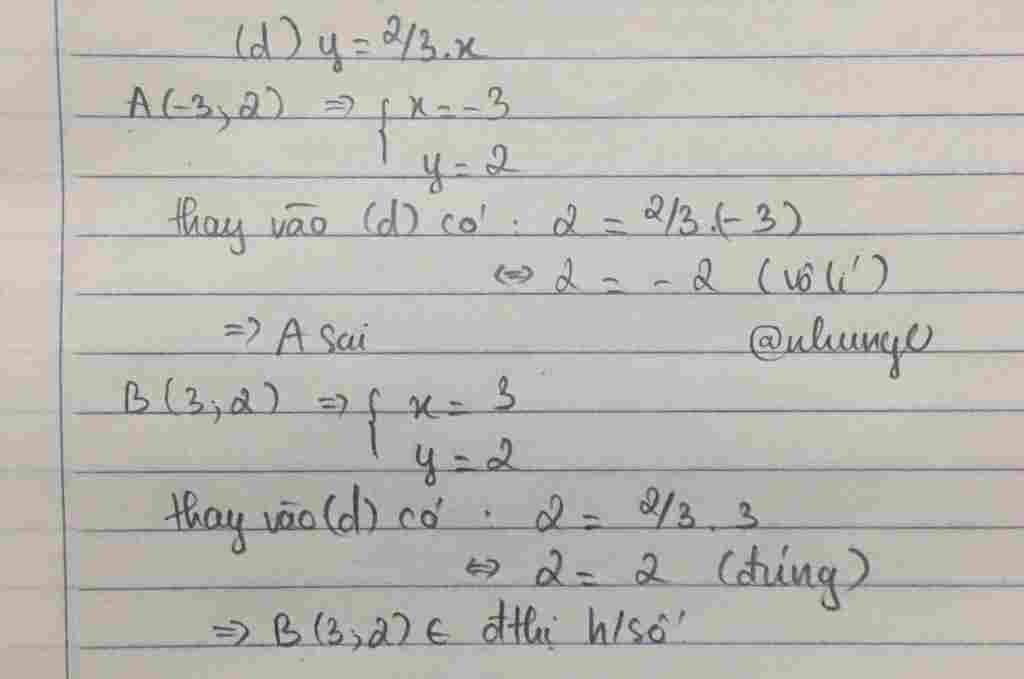 (d) y = 2/3.x
A(-3; 2) => { x = -3
y = 2
thay vào (d) có : 2 = 2/3.(-3)
<=> 2 = -2 (vô lí)
=> A sai @nhungc
B(3; 2) => { x = 3
y = 2
thay vào (d) có : 2 = 2/3 . 3
<=> 2 = 2 (đúng)
=> B(3; 2) ∈ đthị h/số